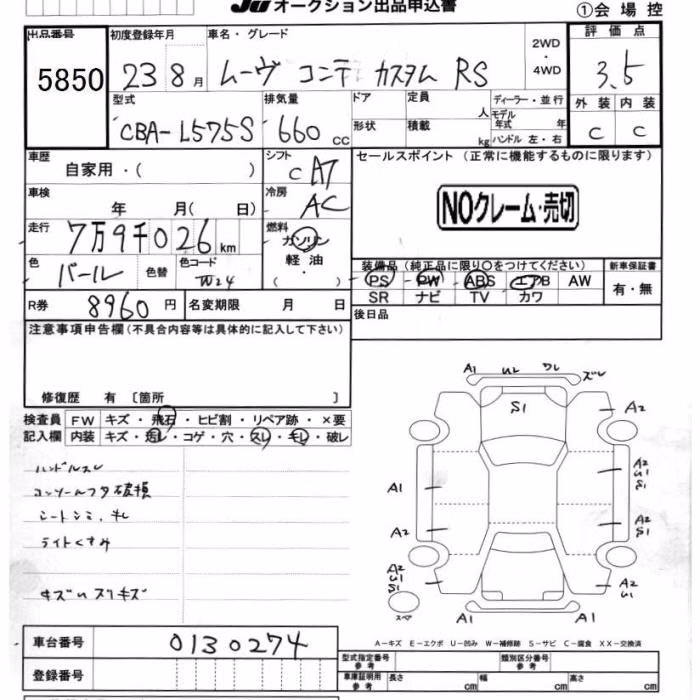 JU オークション出品申込書
①会場控
出品番号 5850
初度登録年月 23 8月
車名・グレード ムーヴ コンテ カスタム RS
2WD・4WD
評価点 3.5
型式 CBA-L575S
排気量 660 cc
ドア 定員 人
形状 積載 kg
ディーラー・並行
モデル年式 年
ハンドル 左・右
外装 内装
C C
車歴 自家用・( )
シフト CAT
セールスポイント (正常に機能するものに限ります)
車検 年 月( 日)
冷房 AC
NOクレーム・売切
走行 7万9千026km
燃料 ガソリン 軽油・( )
色 パール 色替 色コード W24
装備品 (純正品に限り○をつけてください) 新車保証書
PS PW ABS エアB AW 有・無
SR ナビ TV カワ
R券 8960円 名変期限 月 日
後日品
注意事項申告欄 (不具合内容等は具体的に記入して下さい)
修復歴 有 〔箇所 〕
検査員記入欄
FW キズ・飛石・ヒビ割・リペア跡・×要
内装 キズ・汚レ・コゲ・穴・スレ・キレ・破レ
ハンドルスレ
コンソールフタ破損
シートシミ、キレ
ライトくすみ
キズUスリキズ
A1 U2 ワレ ズレ
S1
A2
A1
A2 U1 S1
A2
A2 S1
A2 U1 S1
A2 U1
スペア
A1 A1
A-キズ E-エクボ U-凹み W-補修跡 S-サビ C-腐食 XX-交換済
車台番号 0130274
登録番号
型式指定番号 参考 類別区分番号 参考
車庫証明用 参考 長さ cm 幅 cm 高さ cm